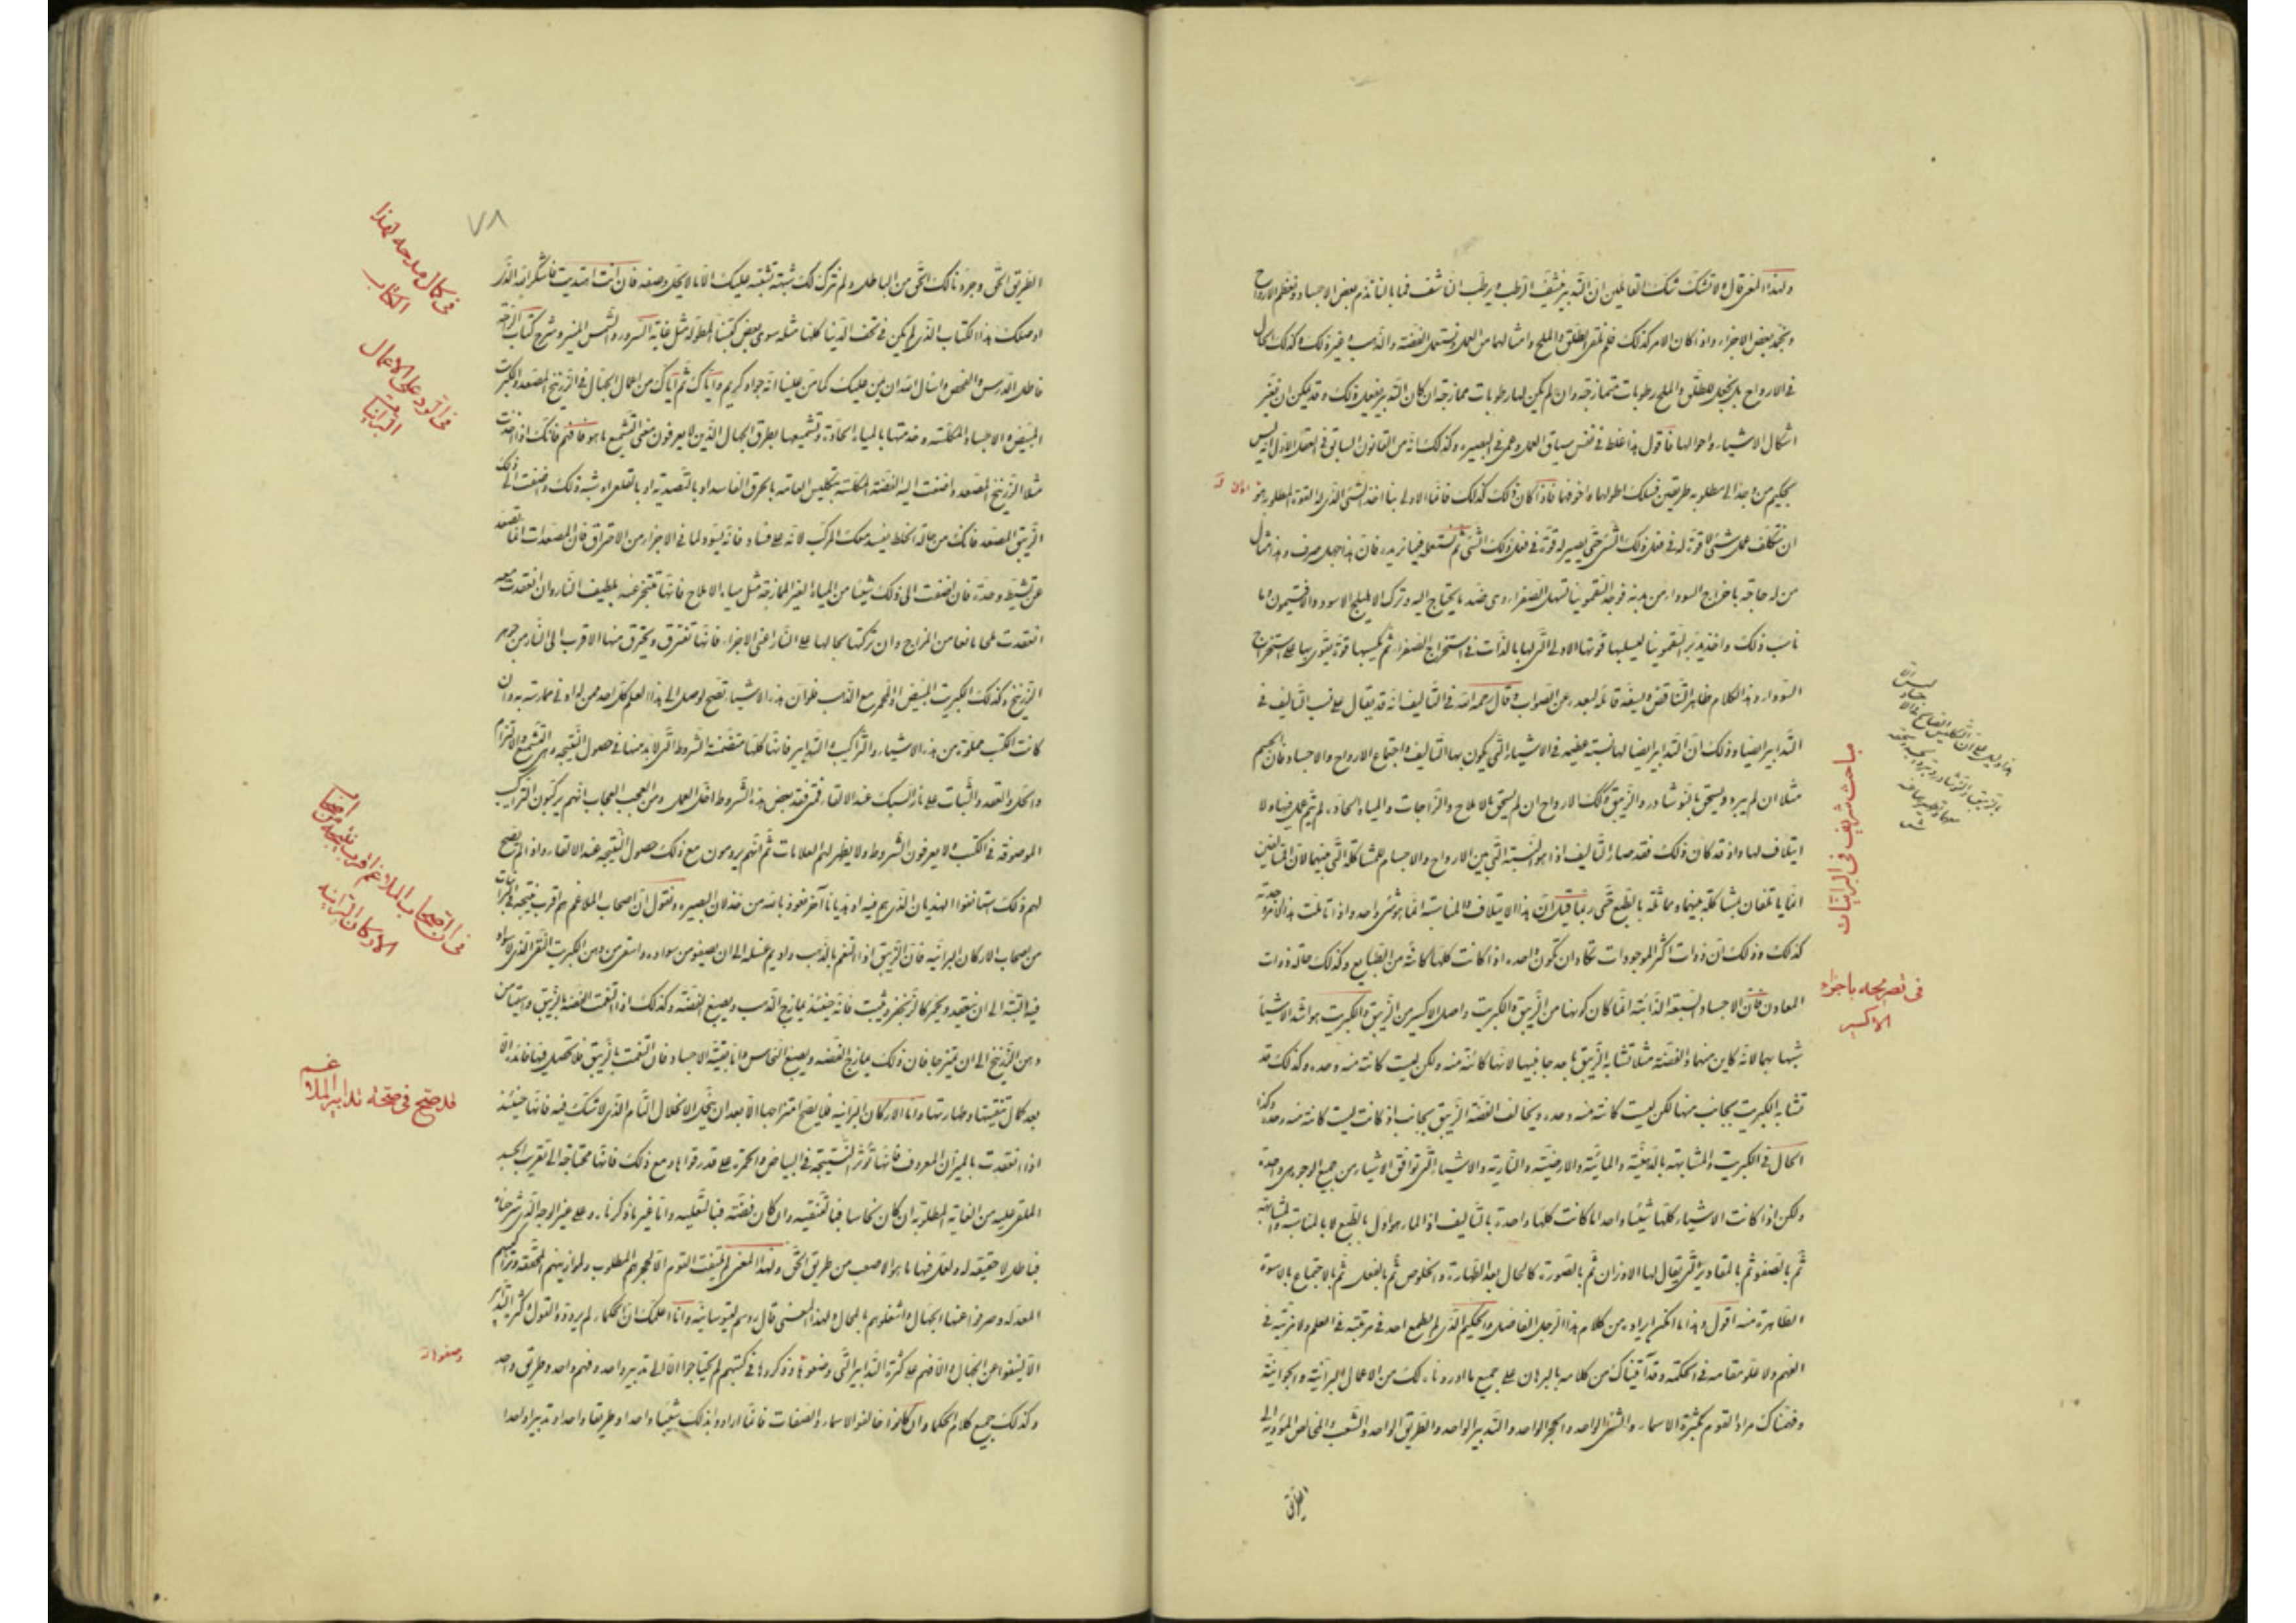 ولهذا المعنى قال ولا تشكك شك القائلين ان التدبير ينشف الرطب ويرطب الناشف فما بالنا نذم بعض الاجساد ونعظم الارواح
ونمجد بعض الاجزاء واذا كان الامر كذلك فلم نلقى الطلق والملح وامثالهما من العمل ونستعمل الفضة والذهب وغير ذلك وكذلك الحال
في الارواح بل نجعل للطلق والملح رطوبات متمازجة وان لم يكن لها رطوبات ممازجة ان كان التدبير يفعل ذلك وقد يمكن ان تغير
اشكال الاشياء واحوالها فاقول هذا غلط في نفس سياق العمل وعمى في البصيرة وكذلك انه من القانون السابق في العقل الاول انه ليس
بحكيم من وجد الى مطلوبه طريقين فسلك اطولهما واخوفهما فاذا كان ذلك كذلك فانما الاولى بنا اخذ الشئ الذي له القوة المطلوبة
ان نتكلف عمل شئ لا قوة له في فعل ذلك الشئ حتى يصير له قوة في فعل ذلك الشئ ثم نستعمله فيما نريده فان هذا جهل صرف وهذا مثال
من له حاجة باخراج السوداء من بدنه فوجد السقمونيا تسهل الصفراء وهي ضد ما يحتاج اليه وترك الاهليلج الاسود والافتيمون وما
ناسب ذلك واخذ يدبر السقمونيا ليسلبها قوتها الاولى التي لها بالذات في استخراج الصفراء ثم يكسبها قوة يقوى بها على استخراج
السوداء وهذا الكلام ظاهر التناقض وسفه قائله لبعده عن الصواب وقال رحمه الله في التاليف انه قد يقال على نسب التاليف في
التدابير ايضا وذلك ان التدابير ايضا لها نسبة عظيمة في الاشياء التي يكون بها التاليف واجتماع الارواح والاجساد فان الجسم
مثلا ان لم يبرد ويسحق بالنوشادر والزيبق وتلك الارواح ان لم يسحق بالاملاح والزاجات والمياه الحادة لم يتم عمل فيها ولا
ايتلاف لها واذ قد كان ذلك فقد صار التاليف اذا هو النسبة التي بين الارواح والاجسام للمشاكلة التي بينهما لان
انما ياتلفان بمشاكلة بينهما ومماثلة بالطبع حتى ربما قيل ان هذا الايتلاف والمناسبة انما هو شئ واحد واذا تاملت هذا الامر وجدته
كذلك وذلك ان ذوات اكثر الموجودات تكاد ان تكون واحدة اذا كانت كلها كائنة من الطبايع وكذلك حالة ذوات
المعادن فان الاجساد السبعة الذائبة انما كان كونها من الزيبق والكبريت واصل الاكسير من الزيبق والكبريت هو اشد الاشياء
شبها بهما لانه كاين منهما والفضة مثلا تشابه الزيبق باحد جانبيها لانها كائنة منه ولكن ليست كائنة منه وحده وكذلك قد
تشابه الكبريت بجانب منها لكن ليست كائنة منه وحده ويخالف الفضة الزيبق بجانب اذ كانت ليست كائنة منه وحده وكذا
الحال في الكبريت والمشابهة بالدهنية والمائية والارضية والنارية والاشياء التي توافق الاشياء من جميع الوجوه هي واحدة
ولكن اذا كانت الاشياء كلها شيئا واحدا ما كانت كلها واحدة بالتاليف اذا الماء هو اول بالطبع لا بالمناسبة والمشابهة
ثم بالصفو ثم بالمقادير التي يقال لها الاوزان ثم بالصورة كالحال بعد الطهارة والخلوص ثم بالفعل ثم بالاجتماع بالاسوة
الظاهرة منه اقول وهذا ما امكن ايراده من كلام هذا الرجل الفاضل والحكيم الذي لم يطمع احد في مرتبته في العلم ولا مزيته في
الفهم ولا علو مقامه في الحكمة وقد اتيناك من كلامه بالبرهان على جميع ما اوردناه لك من الاعمال البرانية والجوانية
وفهمناك مراد القوم بكثرة الاسماء والشئ الواحد والحجر الواحد والتدبير الواحد والطريق الواحد والشعب والمخالص المؤدية الى
الطريق
مباحث شريف في البرانيات
في تصريحه باجزاء
الاكسير
٧٨
الطريق الحق وجردنا لك الحق من الباطل ولم نترك لك شبهة تشتبه عليك الا ما لا يحل وصفه فان انت اهتديت فاشكر الله الذي
اوصلك هذا الكتاب الذي لم يكن في تحف الدنيا كلها مثله سوى بعض كتبنا المطولة مثل غاية السرور والشمس المنير وشرح كتاب الرحمة
فاطل الدرس والفحص واسال الله ان يمن عليك كما من علينا انه جواد كريم واياك ثم اياك من اعمال الجهال في الزرنيخ المصعد والكبريت
المبيض والاجساد المكلسة وخدمتها بالمياه الحادة وتشميعها بطرق الجهال الذين لا يعرفون معنى التشميع ما هو فافهم فانك اذا اخذت
مثلا الزرنيخ المصعد واضفت اليه الفضة المكلسة بتكليس العامة بالحرق الفاسد او بالتصدية او بالقلعى او شبه ذلك واضفت الى ذلك
الزيبق المصعد فانك من حالة الخلط يفسد معك المركب لانه على فساد فانه يسود لما في الاجزاء من الاحتراق فان المصعدات انما تصعد
عن تشيط وحدة فان اضفت الى ذلك شيئا من المياه الغير الممازجة مثل مياه الاملاح فانها تتبخر عنه بلطيف النار وان انعقدت معه
انعقدت ملحا مانعا من المزاج وان تركتها بحالها على النار اعنى الاجزاء فانها تفترق ويحترق منها الاقرب الى النار من جوهر
الزرنيخ وكذلك الكبريت المبيض او المحمر مع الذهب فلو ان هذه الاشياء تصح لوصل الى هذا العلم كل احد ممن له ادنى ممارسة به وان
كانت الكتب مملوة من هذه الاشياء والتراكيب والتدابير فانها كلها متضمنة الشروط التي لا بد منها في حصول النتيجة وهي التشميع والالتزام
والحل والعقد والثبات على نار السبك عند الالقاء فمتى فقد بعض هذه الشروط اختل العمل ومن العجب العجاب انهم يركبون التراكيب
الموصوفة في الكتب ولا يعرفون الشروط ولا يظهر لهم العلامات ثم انهم يرومون مع ذلك حصول النتيجة عند الالقاء واذا لم يصح
لهم ذلك استانفوا الهذيان الذي هم فيه او هذيانا آخر نعوذ بالله من خذلان البصيرة ونقول ان اصحاب الملاغم هم اقرب نتيجة في البرانيات
من اصحاب الاركان البرانية فان الزيبق اذا التغم بالذهب واديم غسله الى ان يصفو من سواده واسقى من دهن الكبريت النقى الذي لا سواد
فيه البتة الى ان ينعقد ويحمر كالزنجفر ويثبت فانه حينئذ يمازج الذهب ويصبغ الفضة وكذلك اذا التغمت الفضة بالزيبق واسقيا من
دهن الزرنيخ الى ان يمتزجا فان ذلك يمازج الفضة ويصبغ النحاس واما بقية الاجساد فان التغمت بالزيبق فلا تحصل فيها فائدة الا
بعد كمال تنقيتها وطهارتها واما الاركان البرانية فلا يصح امتزاجها الا بعد ان ينحل الانحلال التام الذي لا شك فيه فانها حينئذ
اذا انعقدت بالميزان المعروف فانها تؤثر النتيجة في البياض والحمرة على قدر قواها ومع ذلك فانها محتاجة الى تقريب الجسد
الملقى عليه من الغاية المطلوبة ان كان نحاسا فبالتنقية وان كان فضة فبالتعليه واما غير ما ذكرناه وعلى غير الوجه الذي شرحناه
فباطل لا حقيقة له ولعل فيها ما هو الاصعب من طريق الحق ولهذا المعنى لم يلتفت القوم الا لحجرهم المطلوب ولموازينهم المحققة وتراكيبهم
المعدلة وصرفوا عنها الجهال واشغلوهم بالمحال ولهذا المعنى قال ويسم ليتوسانيه وانا اعلمك ان الحكماء لم يرددوا القول وكثرة التدابير
الا ليشغلوا عن الجهال والا فهم على كثرة التدابير التي وضعوها وذكروها في كتبهم لم يحتاجوا الا الى تدبير واحد وفهم واحد وطريق واحد
وكذلك جميع كلام الحكماء وان كانوا خالفوا الاسماء والصفات فانما ارادوا بذلك شيئا واحدا وطريقا واحدا وتدبيرا واحدا
في كمال مدحه لهذا
الكتاب
في الرد على الاعمال
البرانية
في ان اصحاب الملاغم اقرب نتيجة من اصحاب
الاركان البرانية
قد صحح في صحة تدابير الملاغم